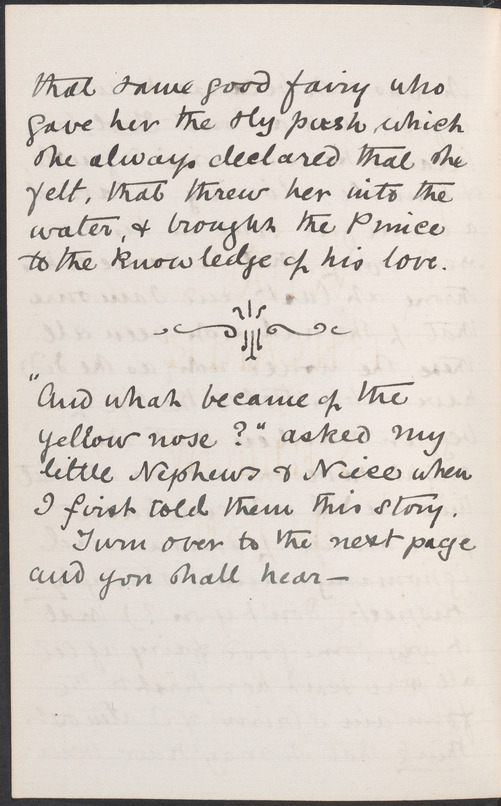 that same good fairy who
gave her the sly push which
she always declared that she
felt, that threw her into the
water, & brought the Prince
to the knowledge of his love.
"And what became of the
yellow nose?" asked my
little Nephews & Niece when
I first told them this story.
Turn over to the next page
and you shall hear—